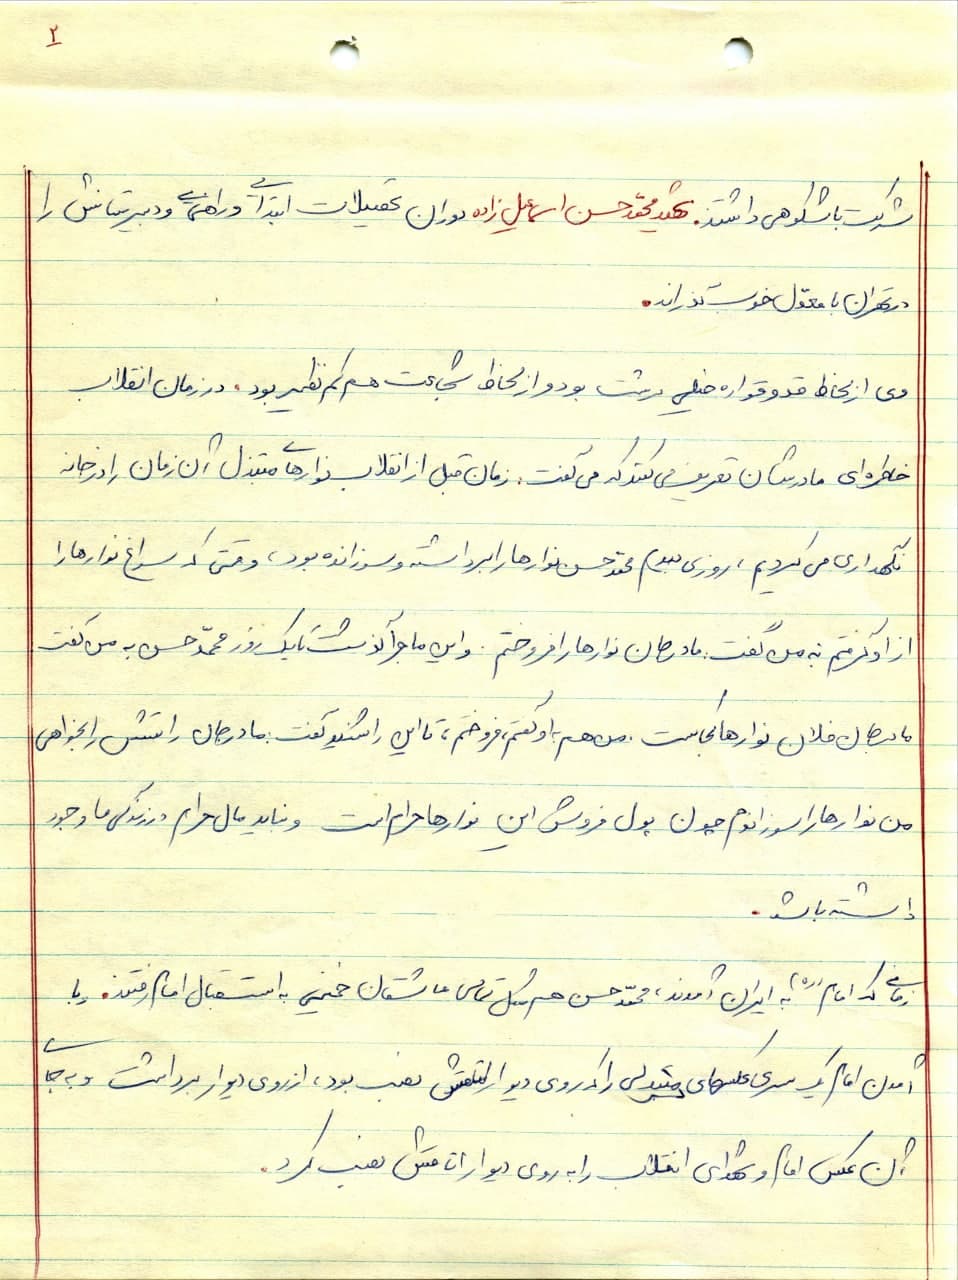 ۲
شرکت باشکوهی داشتند. شهید محمّدحسن اسماعیل زاده دوران تحصیلات ابتدائی و راهنمایی و دبیرستانش را
در تهران با معدّل خوب گذراند.
وی از لحاظ قد و قواره خیلی درشت بود و از لحاظ شجاعت هم کم نظیر بود. در زمان انقلاب
خاطره‌ای مادرشان تعریف می‌کند که می‌گفت: زمان قبل از انقلاب نوارهای مبتذل آن زمان را در خانه
نگهداری می‌کردیم، روزی دیدم محمّدحسن نوارها را برداشته و سوزانده بود، وقتی که سراغ نوارها را
از او گرفتم به من گفت: مادرجان نوارها را فروختم. و این ماجرا گذشت تا یک روز محمّدحسن به من گفت
مادرجان فلان نوارها کجاست. من هم به او گفتم، فروختم، تا این را شنید گفت: مادرجان راستش را بخواهی
من نوارها را سوزاندم چون پول فروش این نوارها حرام است و نباید مال حرام در زندگی ما وجود
داشته باشد.
زمانی که امام (ره) به ایران آمدند، محمّدحسن هم مثل تمامی عاشقان خمینی به استقبال امام رفتند. و با
آمدن امام یک سری عکسهای مبتذلی را که روی دیوار اتاقش نصب بود، از روی دیوار برداشت و به جای
آن عکس امام و شهدای انقلاب را به روی دیوار اتاقش نصب کرد.